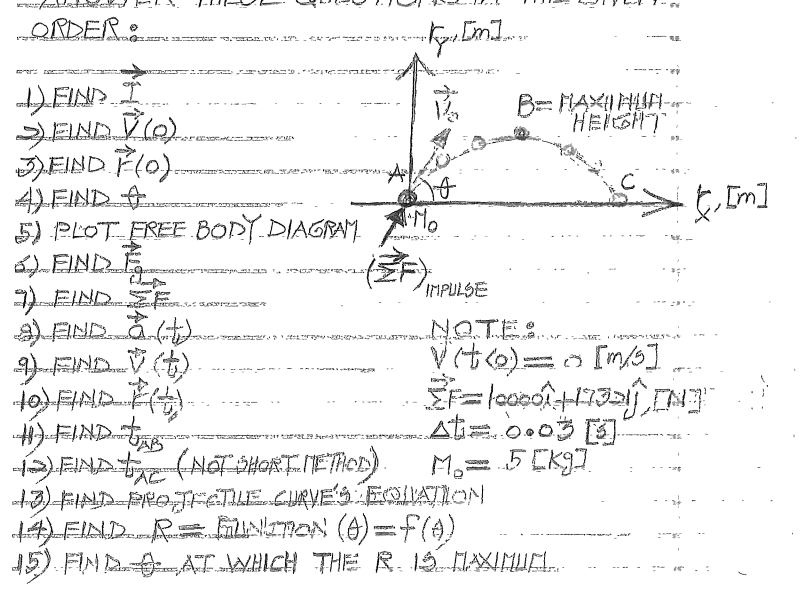 ANSWER THESE QUESTIONS IN THE GIVEN
ORDER:
1) FIND I
2) FIND V(0)
3) FIND r(0)
4) FIND θ
5) PLOT FREE BODY DIAGRAM
6) FIND Fg
7) FIND ΣF
8) FIND a(t)
9) FIND V(t)
10) FIND r(t)
11) FIND t_AB
12) FIND t_AC (NOT SHORT METHOD)
13) FIND PROJECTILE CURVE'S EQUATION
14) FIND R = FUNCTION (θ) = f(θ)
15) FIND θ AT WHICH THE R IS MAXIMUM
r_y, [m]
V₀
B = MAXIMUM
HEIGHT
A
θ
C
r_x, [m]
M₀
(ΣF)IMPULSE
NOTE:
V(t<0) = 0 [m/s]
ΣF = 10000î + 17321ĵ, [N]
Δt = 0.03 [s]
M₀ = 5 [Kg]